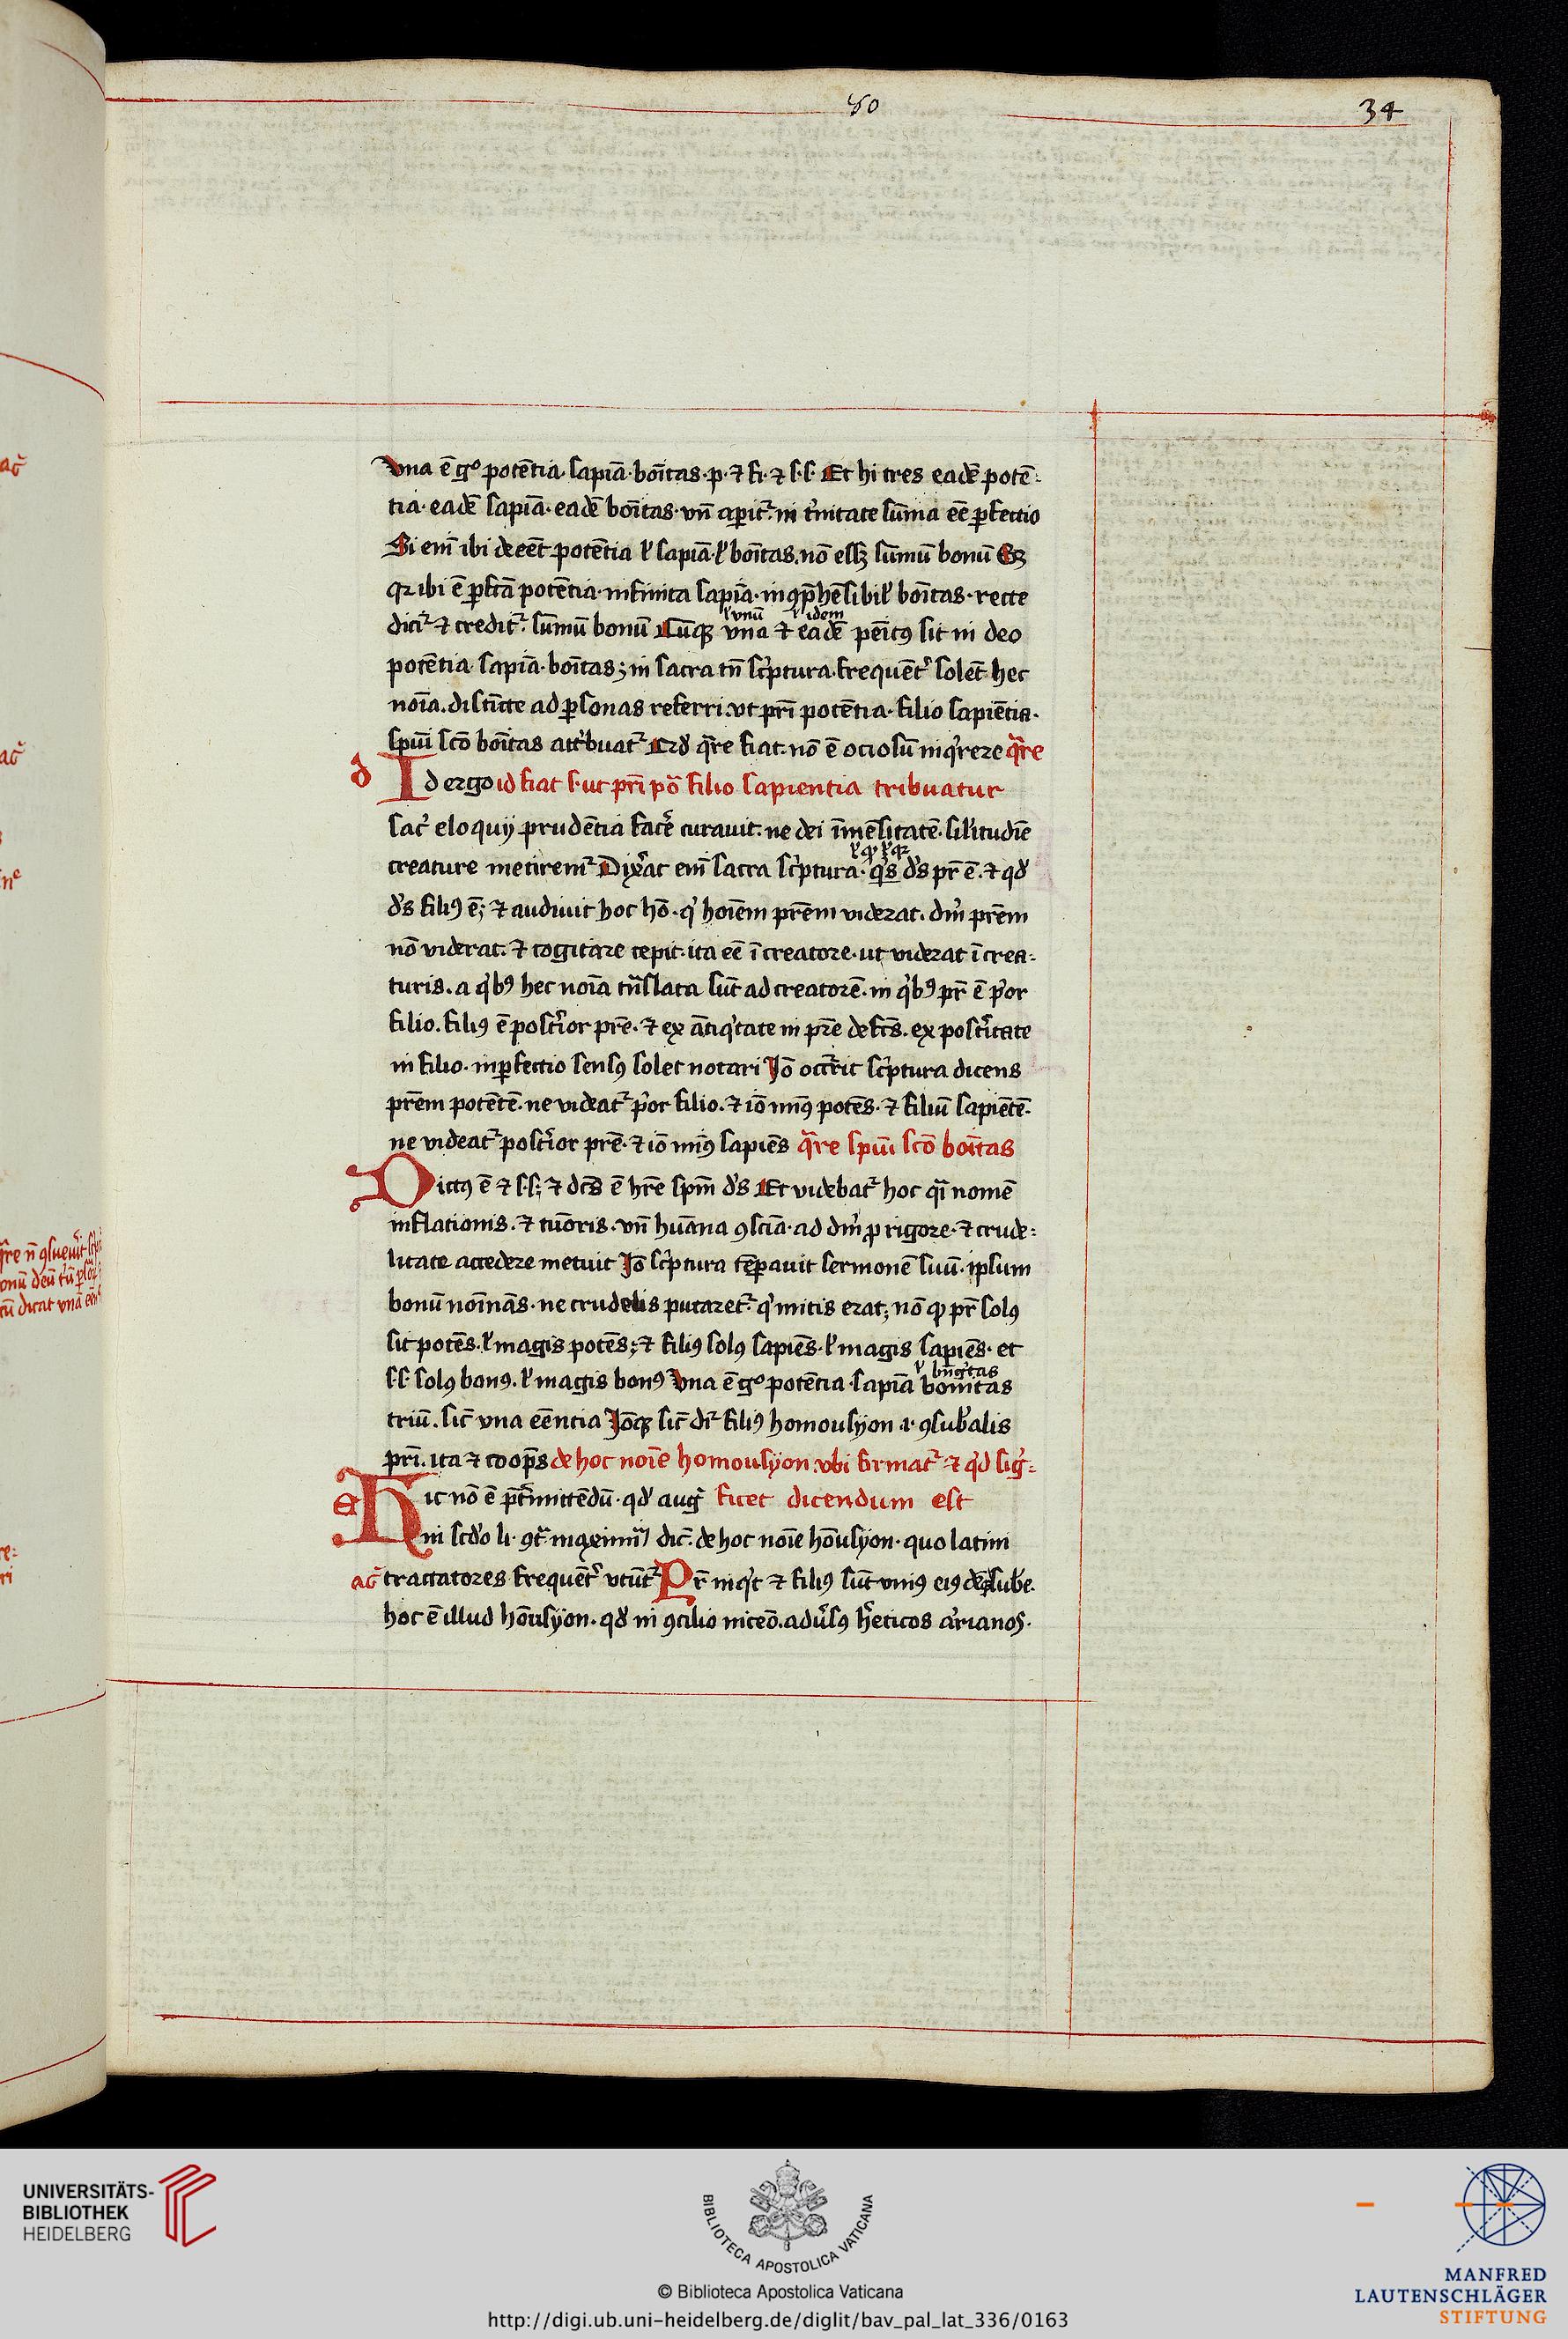 80
34
vna ē gº potētia. sapiā. boītas. p. ⁊ fi. ⁊ s. s. Et hi tres eadē potē-
tia. eadē sapiā. eadē boītas. vñ aperitᷣ. in tᷣnitate sūma eē ꝑfectio
Si em̄ ibi deeēt potētia ł sapiā. ł boītas. nō essꝫ sūmū bonū Sꝫ
qꝛ ibi ē ꝑfcā potētia. infinita sapiā. inꝯp̄hēsibilꝭ boītas. recte
ł vnū ł idem
dicitᷣ ⁊ creditᷣ. sūmū bonū Cūqꝫ vna ⁊ eadē peītꝰ sit in deo
potētia. sapiā. boītas; in sacra tñ scᷣptura. frequētᷣ solēt hec
noīa. distīcte ad ꝑsonas referri. vt pr̄i potētia. filio sapiētia.
spūi scō boītas attᷣbuatᷣ Qd̛ qᷓre fiat. nō ē ociosū inqᷣrere qᷓre
d Id ergo id fiat s. ut pr̄i pō filio sapientia tribuatur
sacᷣ eloquij prudētia facᷣe curauit. ne dei īmēsitatē. silitudīe
ł ꝙ ł qꝛ
creature metiremᷣ Dixᷣat em̄ sacra scᷣptura. qᷣs d̛s pr̄ ē. ⁊ qd̛
d̛s filiꝰ ē; ⁊ audiuit hoc hō. qᷣ hoīem pr̄em viderat. dm̄ pr̄em
nō viderat. ⁊ cogitare cepit. ita eē ī creatore. ut viderat ī crea-
turis. a qᷣbꝰ hec noīa tr̄slata sūt ad creatorē. in qᷣbꝰ pr̄ ē pᷣor
filio. filiꝰ ē postᷣior pr̄e. ⁊ ex ātiqᷣtate in pr̄e defcs̄. ex postᷣitate
in filio. inꝑfectio sensꝰ solet notari Jō occᷣrit scᷣptura dicens
pr̄em potētē. ne videatᷣ pᷣor filio. ⁊ iō minꝰ potēs. ⁊ filiū sapiētē.
ne videatᷣ postᷣior pr̄e. ⁊ iō minꝰ sapiēs qᷓre spūi scō boītas
Dictꝰ ē ⁊ s. s; ⁊ dcs̄ ē hr̄e spm̄ d̛s Et videbatᷣ hoc qᷓi nomē
inflationis. ⁊ tuōris. vñ huāna ꝯsciā. ad dm̄ ꝓ rigore. ⁊ crude-
litate accedere metuit Jō scᷣptura tēꝑauit sermonē suū. ipsum
bonū noīnās. ne crudelis putaretᷣ. qᷣ mitis erat; nō ꝙ pr̄ solꝰ
sit potēs. ł magis potēs; ⁊ filiꝰ solꝰ sapiēs. ł magis sapiēs. et
ł bñgᷣtas
s s. solꝰ bonꝰ. ł magis bonꝰ Vna ē gº potētia. sapiā bonitas
triū. sic̄ vna eēntia Jōqꝫ sic̄ dr̄ filiꝰ homousyon .i. ꝯsub̛alis
pr̄i. ita ⁊ coop̄s de hoc noīe homousyon. vbi firmatᷣ ⁊ qᷣd sigᷣ-
e Hic nō ē p̄tᷣmittēdū. qd̛ augᷣ ficet dicendum est
in scd̛o li. ꝯtᷓ maximinū dic̄. de hoc noīe hōusyon. quo latini
ac̄ tractatores frequētᷣ vtūtᷣ Pr̄ inqᷣt ⁊ filiꝰ sūt vniꝰ eiꝰdēqꝫ sub̛e.
hoc ē illud hōusyon. qd̛ in ꝯcilio niceō. aduᷣsꝰ hᷣeticos arᷣianos.
ac̄
ac̄
UNIVERSITÄTS-
BIBLIOTHEK
HEIDELBERG
BIBLIOTECA APOSTOLICA VATICANA
© Biblioteca Apostolica Vaticana
http://digi.ub.uni-heidelberg.de/diglit/bav_pal_lat_336/0163
MANFRED
LAUTENSCHLÄGER
STIFTUNG